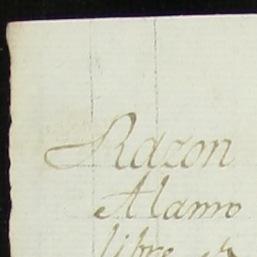 Razon
Alamo
libre